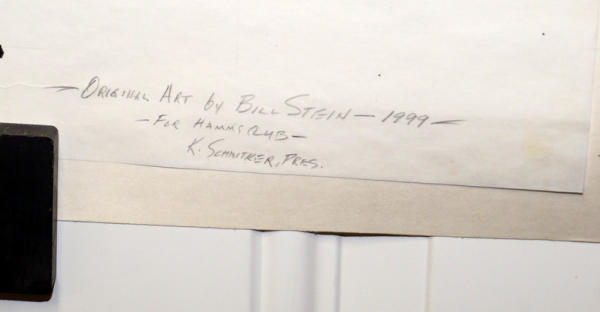 — ORIGINAL ART by BILL STEIN — 1999 —
— FOR HAMM'S CLUB —
K. SCHNITKER, PRES.